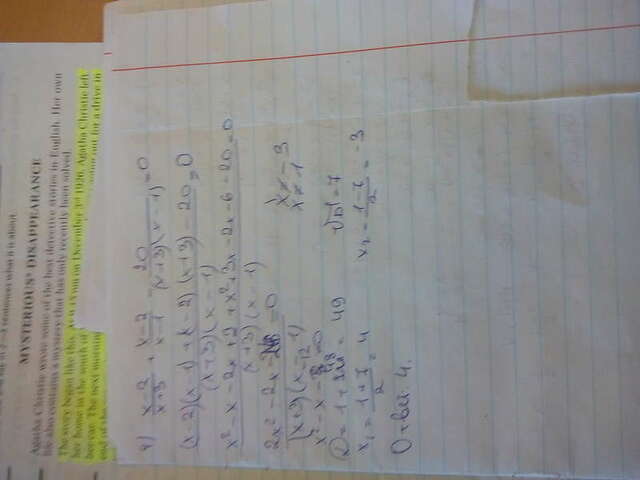 say in 2–3 sentences what it is about.
MYSTERIOUS* DISAPPEARANCE
Agatha Christie wrote some of the best detective stories in English. Her own
life also contains a mystery that has only recently been solved.
The story began like this. At pm on December 3rd 1926, Agatha Christie left
her home in the south of
her car. The next morning going out for a drive in
end of the
(x-2)/(x+3) + (x-2)/(x-1) - 20/((x+3)(x-1)) = 0
((x-2)(x-1) + (x-2)(x+3) - 20)/((x+3)(x-1)) = 0
(x² - x - 2x + 2 + x² + 3x - 2x - 6 - 20)/((x+3)(x-1)) = 0
(2x² - 2x - )/((x+3)(x-1)) = 0
x ≠ -3
x ≠ 1
x² - x - 12 = 0
D = 1 + 48 = 49 √D = 7
x₁ = (1+7)/2 = 4 x₂ = (1-7)/2 = -3
Ответ. 4.